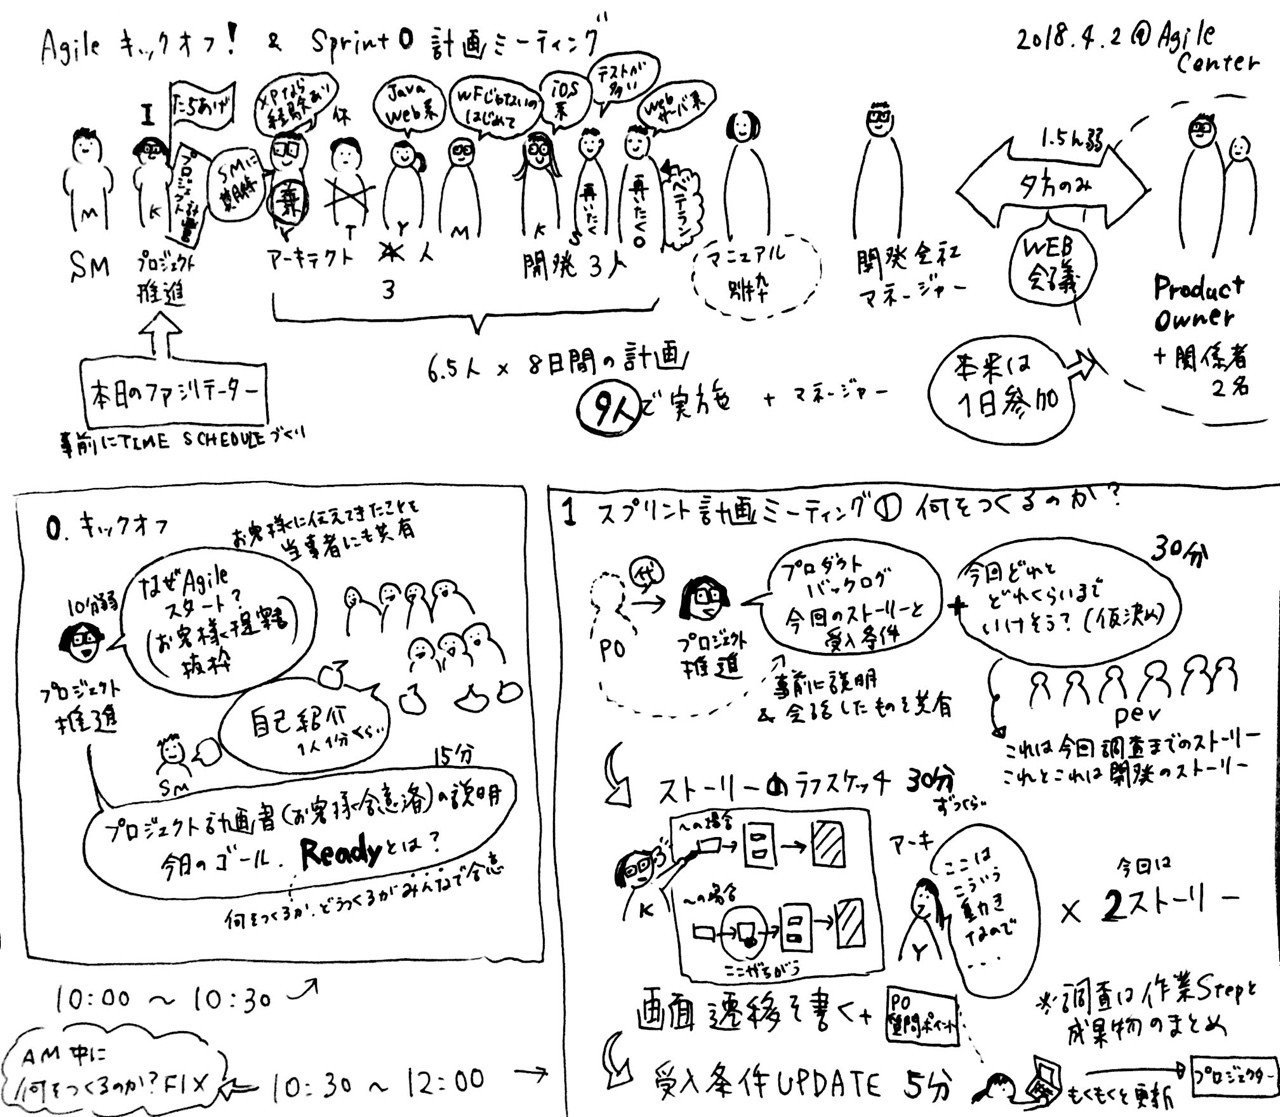 Agile キックオフ! & Sprint 0 計画ミーティング
2018.4.2 @ Agile
Center
I
たちあげ
プロジェクト計画書
SMに
興味
XPなら
経験あり
休
Java
Web系
WFじゃないの
はじめて
iOS
系
テストが
多い
Web
サーバ系
ベテラン
M
K
兼
Y
T
Y
M
K
再いたくS
再いたくO
SM
プロジェクト
推進
アーキテクト 4人
3
開発 3人
マニュアル
別枠
開発会社
マネージャー
1.5h弱
夕方のみ
WEB
会議
Product
Owner
+ 関係者
2名
本来は
1日参加
6.5人 × 8日間の計画
9人で実施 + マネージャー
本日のファシリテーター
事前にTIME SCHEDULEづくり
0. キックオフ
お客様に伝えてきたことを
当事者にも共有
10分弱
なぜAgile
スタート?
(お客様提案書
抜粋
プロジェクト
推進
自己紹介
1人1分くらい
SM
15分
プロジェクト計画書(お客様合意済)の説明
今日のゴール. Readyとは?
何をつくるか、どうつくるかみんなで合意
10:00 ~ 10:30
AM中に
何をつくるのか?FIX
10:30 ~ 12:00
1 スプリント計画ミーティング① 何をつくるのか?
30分
代
PO
プロジェクト
推進
プロダクト
バックログ
今回のストーリーと
受入条件
+
今回どれと
どれくらいまで
いけそう?(仮決め)
事前に説明
& 会話したものを共有
Dev
これは今回調査までのストーリー
これとこれは開発のストーリー
ストーリーのラフスケッチ 30分
ずつくらい
~の場合
~の場合
ここがちがう
K
アーキ
Y
ここは
こういう
動き
なので
...
×
今回は
2ストーリー
画面遷移を書く+
PO
質問ポイント
※調査は作業Stepと
成果物のまとめ
受入条件UPDATE 5分
もくもくと更新
プロジェクター